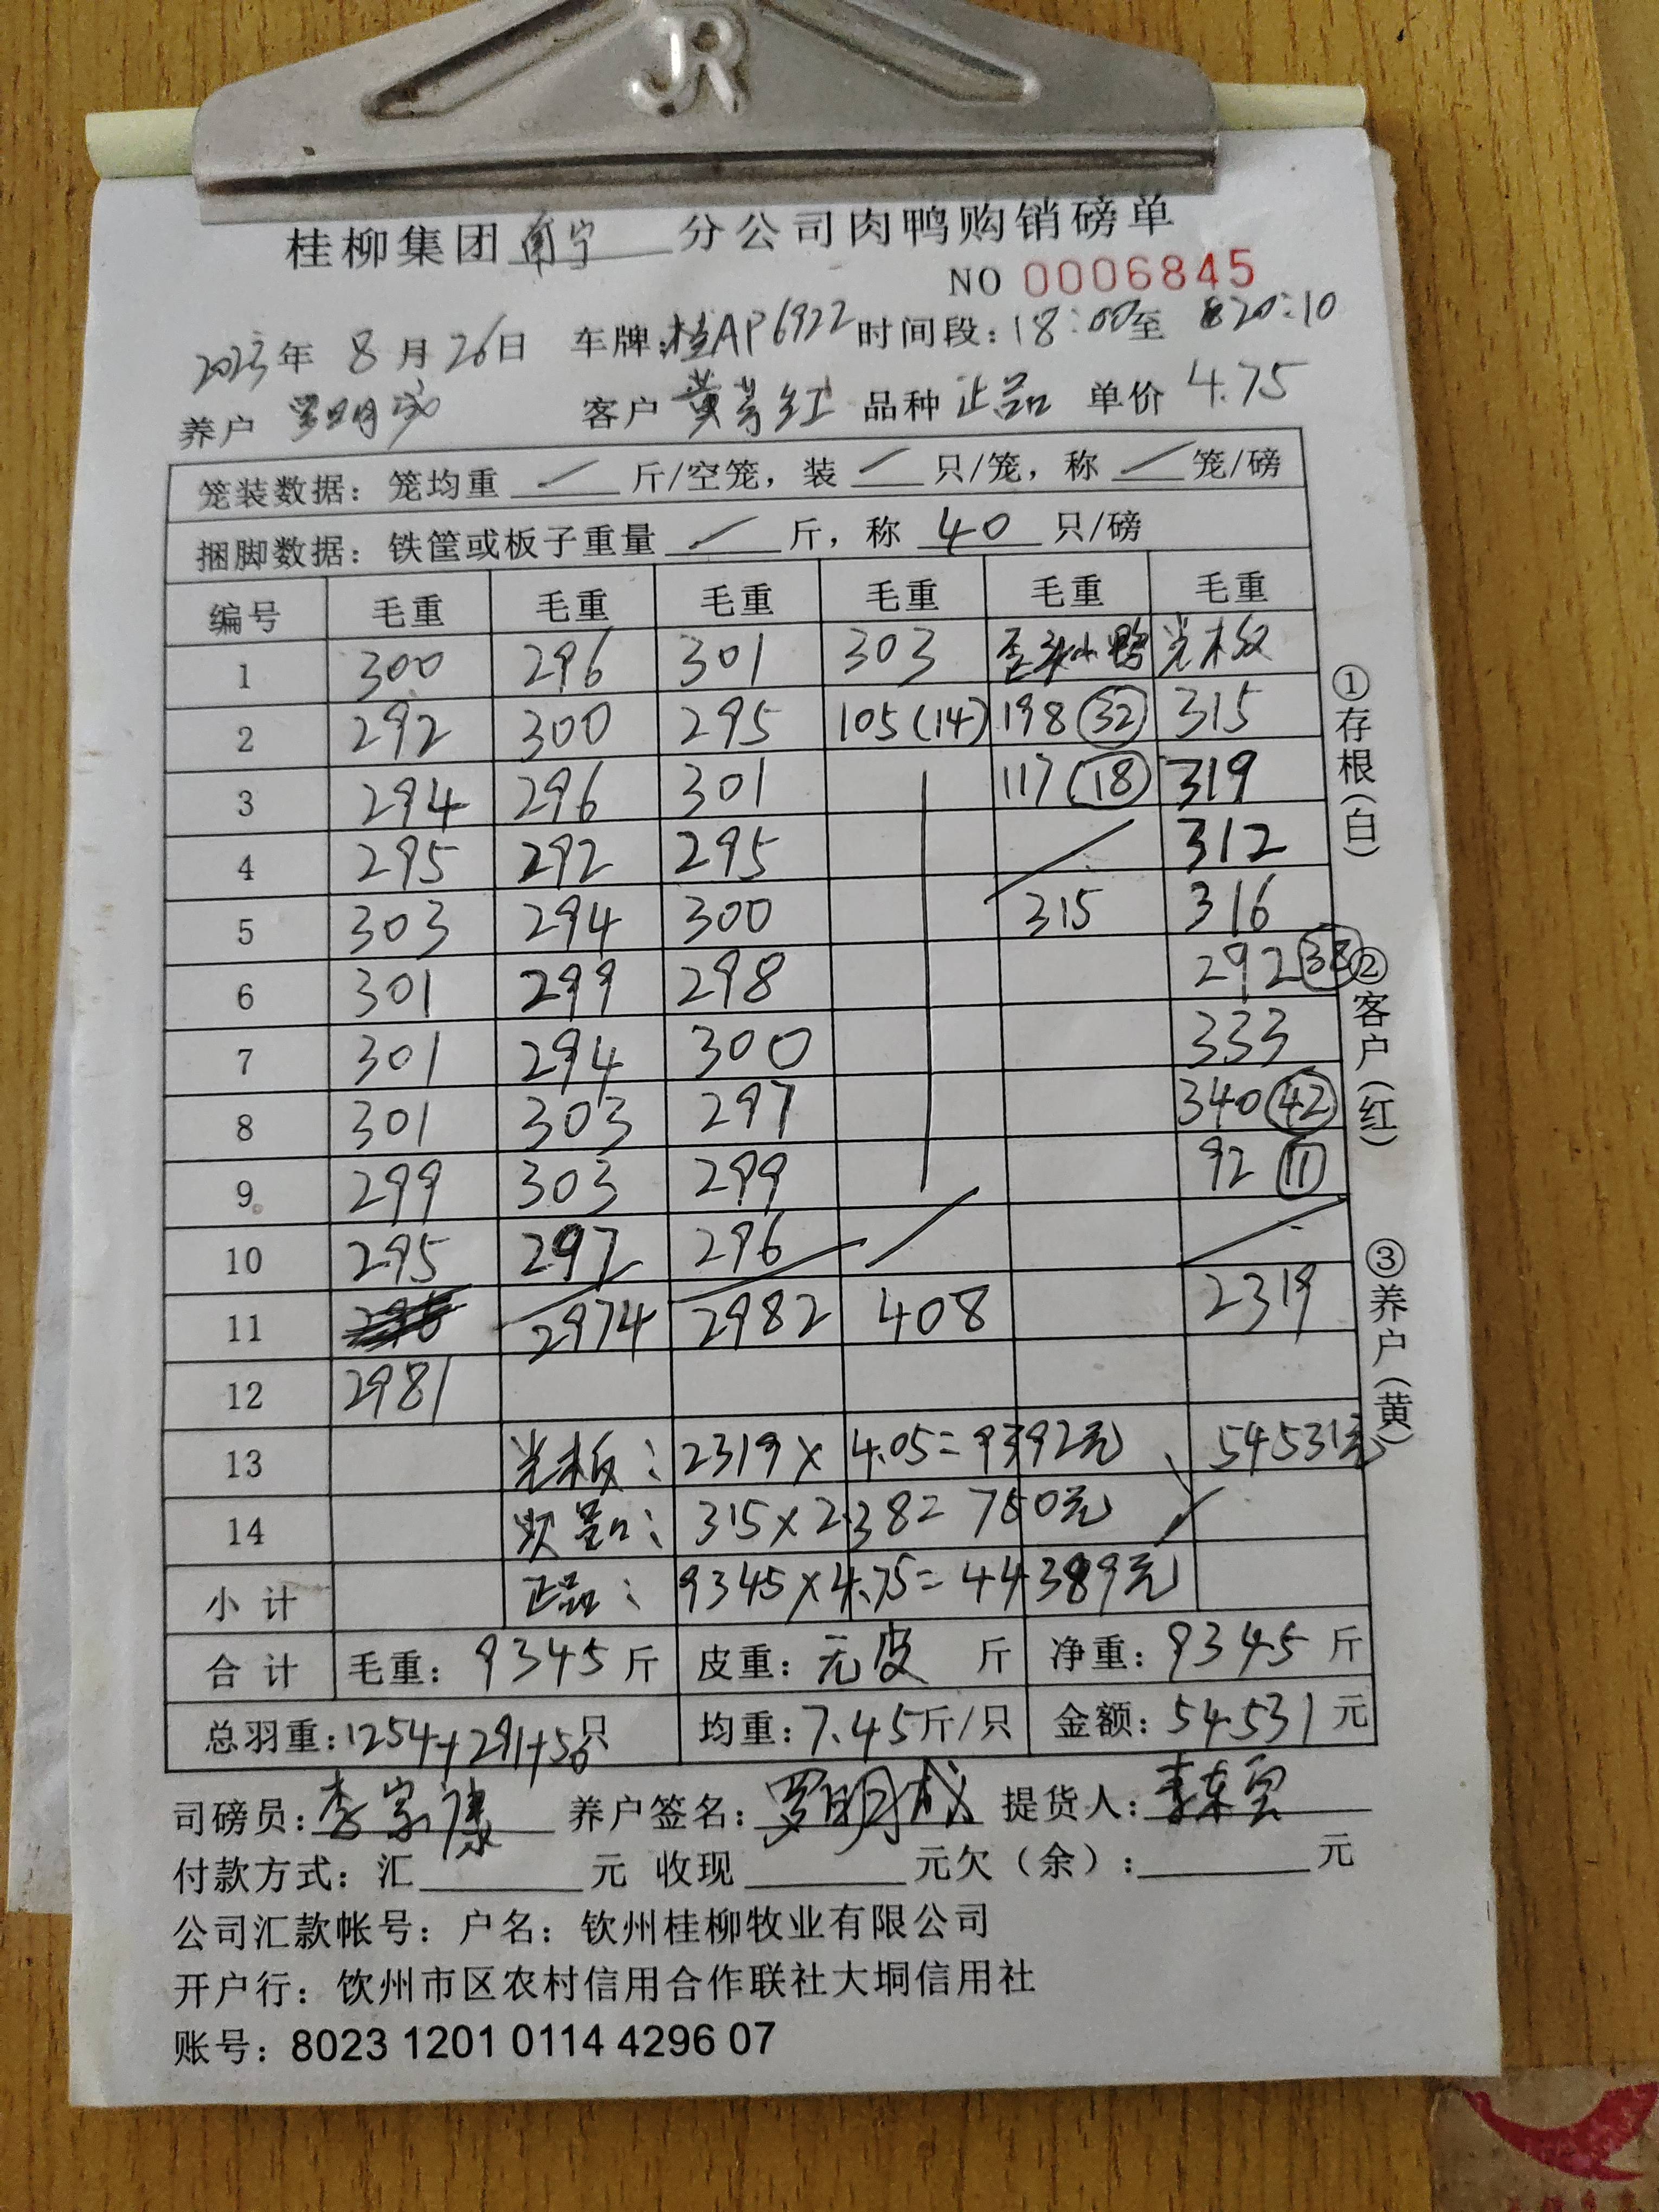 JR
桂柳集团南宁分公司肉鸭购销磅单
NO 0006845
2023年 8月26日 车牌:桂AP6922 时间段:18:00至 20:10
养户 罗明成 客户 黄芳红 品种 正品 单价 4.75
笼装数据: 笼均重 / 斤/空笼, 装 / 只/笼, 称 / 笼/磅
捆脚数据: 铁筐或板子重量 / 斤, 称 40 只/磅
编号 毛重 毛重 毛重 毛重 毛重 毛重
1 300 296 301 303 歪头小鸭 光板
2 292 300 295 105(14) 198(32) 315
3 294 296 301 117(18) 319
4 295 292 295 312
5 303 294 300 315 316
6 301 299 298 292(38)
7 301 294 300 333
8 301 303 297 340(42)
9 299 303 299 92(11)
10 295 297 296
11 2974 2982 408 2319
12 2981
13 光板: 2319×4.05=9392元 54531元
14 次品: 315×2.38=750元
小计 正品: 9345×4.75=44389元
合计 毛重: 9345斤 皮重: 无皮 斤 净重: 9345斤
总羽重:1254+291+50只 均重:7.45斤/只 金额: 54531元
司磅员:李家康 养户签名:罗明成 提货人:
付款方式: 汇 元 收现 元欠(余): 元
公司汇款帐号: 户名: 钦州桂柳牧业有限公司
开户行: 钦州市区农村信用合作联社大垌信用社
账号: 8023 1201 0114 4296 07
①存根(白)
②客户(红)
③养户(黄)